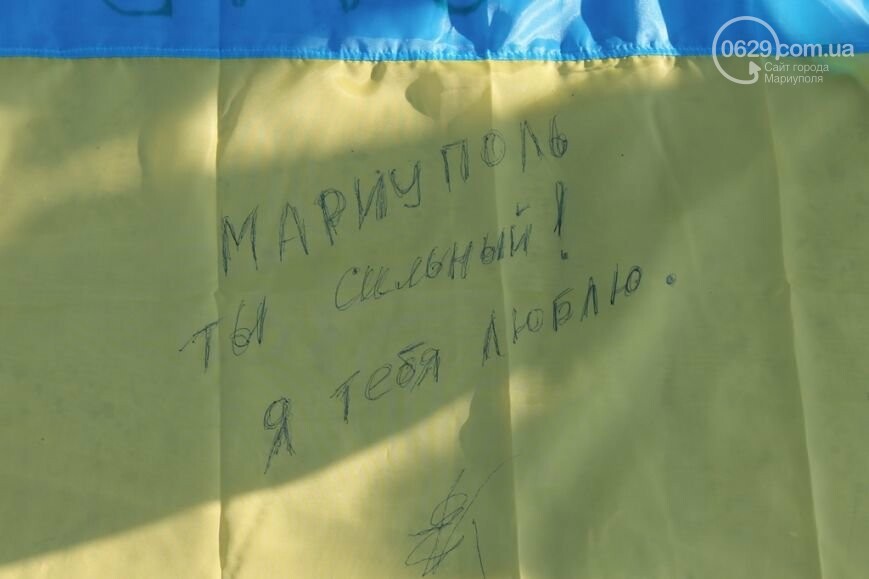 0629.com.ua
Сайт города
Мариуполя
МАРИУПОЛЬ
ТЫ СИЛЬНЫЙ!
Я ТЕБЯ ЛЮБЛЮ.